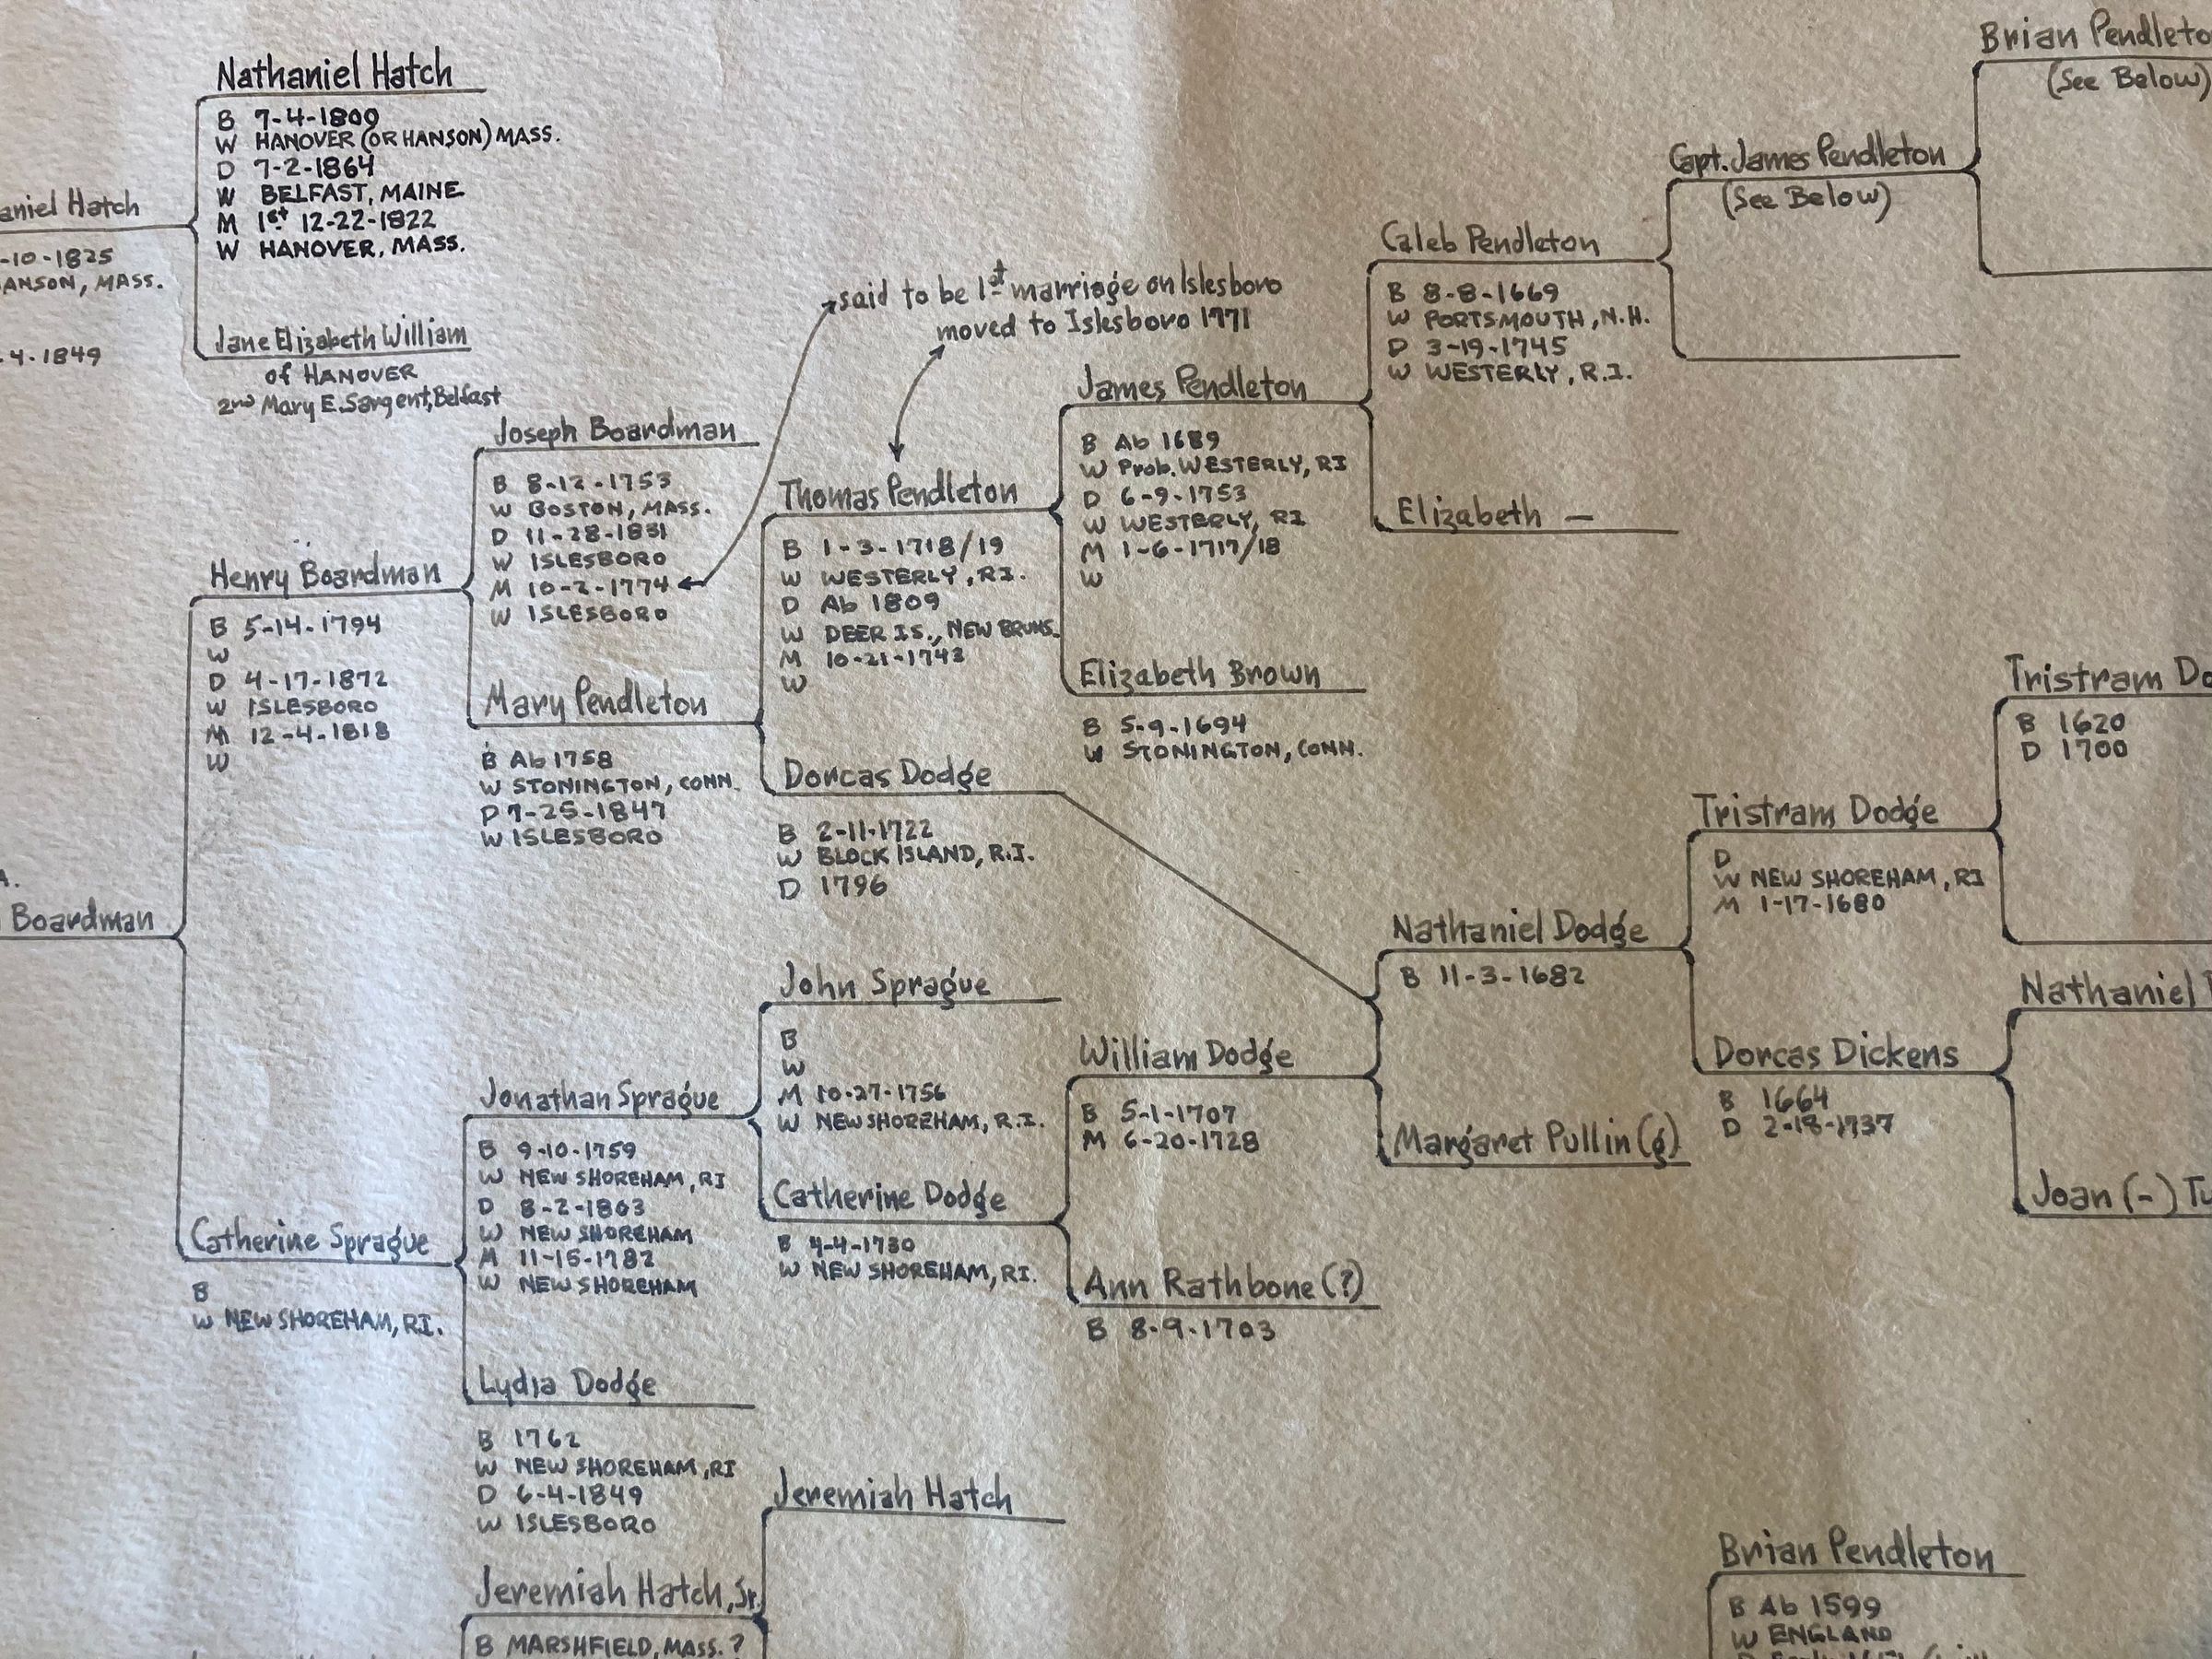 Nathaniel Hatch
B 7-4-1809
W HANOVER (OR HANSON) MASS.
D 7-2-1864
W BELFAST, MAINE
M 1st 12-22-1822
W HANOVER, MASS.
aniel Hatch
-10-1825
ANSON, MASS.
4-1849
Jane Elizabeth William
of HANOVER
2nd Mary E. Sargent, Belfast
said to be 1st marriage on Islesboro
moved to Islesboro 1771
Joseph Boardman
B 8-12-1753
W BOSTON, MASS.
D 11-28-1831
W ISLESBORO
M 10-2-1774
W ISLESBORO
Henry Boardman
B 5-14-1794
W
D 4-17-1872
W ISLESBORO
M 12-4-1818
W
Mary Pendleton
B Ab 1758
W STONINGTON, CONN.
D 7-25-1847
W ISLESBORO
A.
Boardman
Catherine Sprague
B
W NEW SHOREHAM, RI.
Jonathan Sprague
B 9-10-1759
W NEW SHOREHAM, RI
D 8-2-1803
W NEW SHOREHAM
M 11-15-1782
W NEW SHOREHAM
Lydia Dodge
B 1762
W NEW SHOREHAM, RI
D 6-4-1849
W ISLESBORO
Jeremiah Hatch, Sr.
B MARSHFIELD, MASS. ?
Thomas Pendleton
B 1-3-1718/19
W WESTERLY, RI.
D Ab 1809
W DEER IS., NEW BRUNS.
M 10-21-1743
W
Dorcas Dodge
B 2-11-1722
W BLOCK ISLAND, R.I.
D 1796
John Sprague
B
W
M 10-27-1756
W NEW SHOREHAM, R.I.
Catherine Dodge
B 4-4-1730
W NEW SHOREHAM, RI.
Jeremiah Hatch
James Pendleton
B Ab 1689
W Prob. WESTERLY, RI
D 6-9-1753
W WESTERLY, RI
M 1-6-1717/18
W
Elizabeth Brown
B 5-9-1694
W STONINGTON, CONN.
William Dodge
B 5-1-1707
M 6-20-1728
Ann Rathbone (?)
B 8-9-1703
Caleb Pendleton
B 8-8-1669
W PORTSMOUTH, N.H.
D 3-19-1745
W WESTERLY, R.I.
Elizabeth —
Nathaniel Dodge
B 11-3-1682
Margaret Pullin (g)
Capt. James Pendleton
(See Below)
Tristram Dodge
D
W NEW SHOREHAM, RI
M 1-17-1680
Dorcas Dickens
B 1664
D 2-18-1737
Brian Pendleto
(See Below)
Tristram Do
B 1620
D 1700
Nathaniel
Joan (-) Tu
Brian Pendleton
B Ab 1599
W ENGLAND